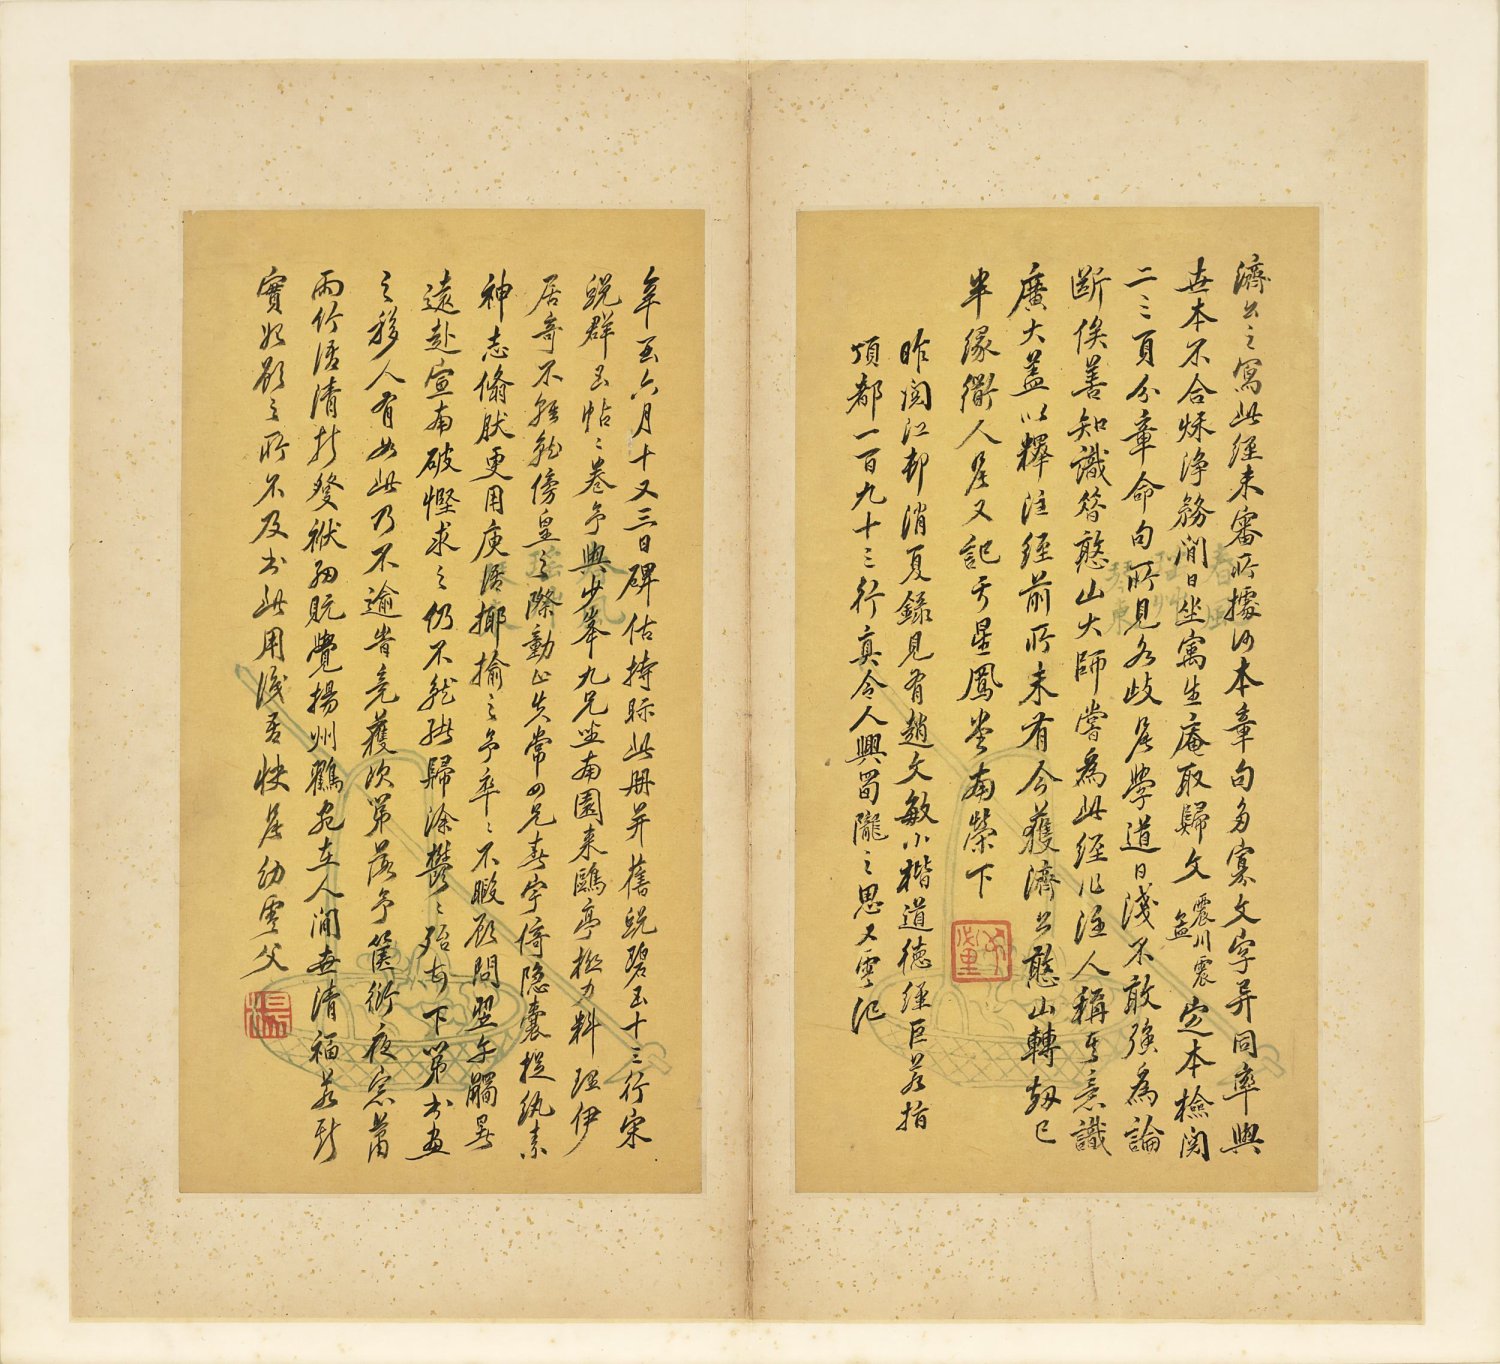 濟公之寫此經未審所據何本章句多寡文字异同率與
世本不合穌淨務閒日坐寓生庵取歸文震川震孟定本檢閱
二三頁分章命句所見各歧居學道日淺不敢強為論
斷俟善知識答憨山大師嘗為此經作注人稱其意識
廣大蓋以釋注經前所未有今獲濟公憨山轉劫已
半緣衢人居又記于星鳳堂南榮下
昨閱江邨消夏錄見有趙文敏小楷道德經巨茗指
頂都一百九十三行真令人興蜀隴之思又雲記
辛丑六月十又三日碑估持眎此冊并舊蛻碧玉十三行宋
蛻群玉帖二卷予與少峯九兄坐南園來鷗亭極力料理伊
居奇不輕諾傍皇之際動止失常四兄春宇倚隱囊捉紈素
神志翛肰更用庾語揶揄之予卒卒不暇顧問翌午觸暑
遠赴宣南破慳求之仍不能終歸涂鬱鬱殆甚下第書畫
之移人有如此乃不逾昔竟獲次第落予篋衍夜窓蕭
雨竹語清於發祓細翫覺揚州鶴宛在人間無清福若斯
實始願之所不及書此用識吾快居幼雲父